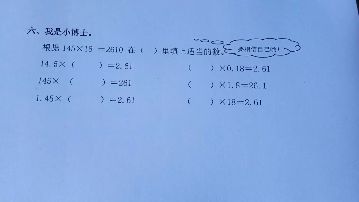 六、我是小博士。
根据 145×18 =2610 在（ ）里填上适当的数。 要相信自己哟！
14.5×（ ）=2.61 （ ）×0.18=2.61
145×（ ）=261 （ ）×1.8=26.1
1.45×（ ）=2.61 （ ）×18=2.61